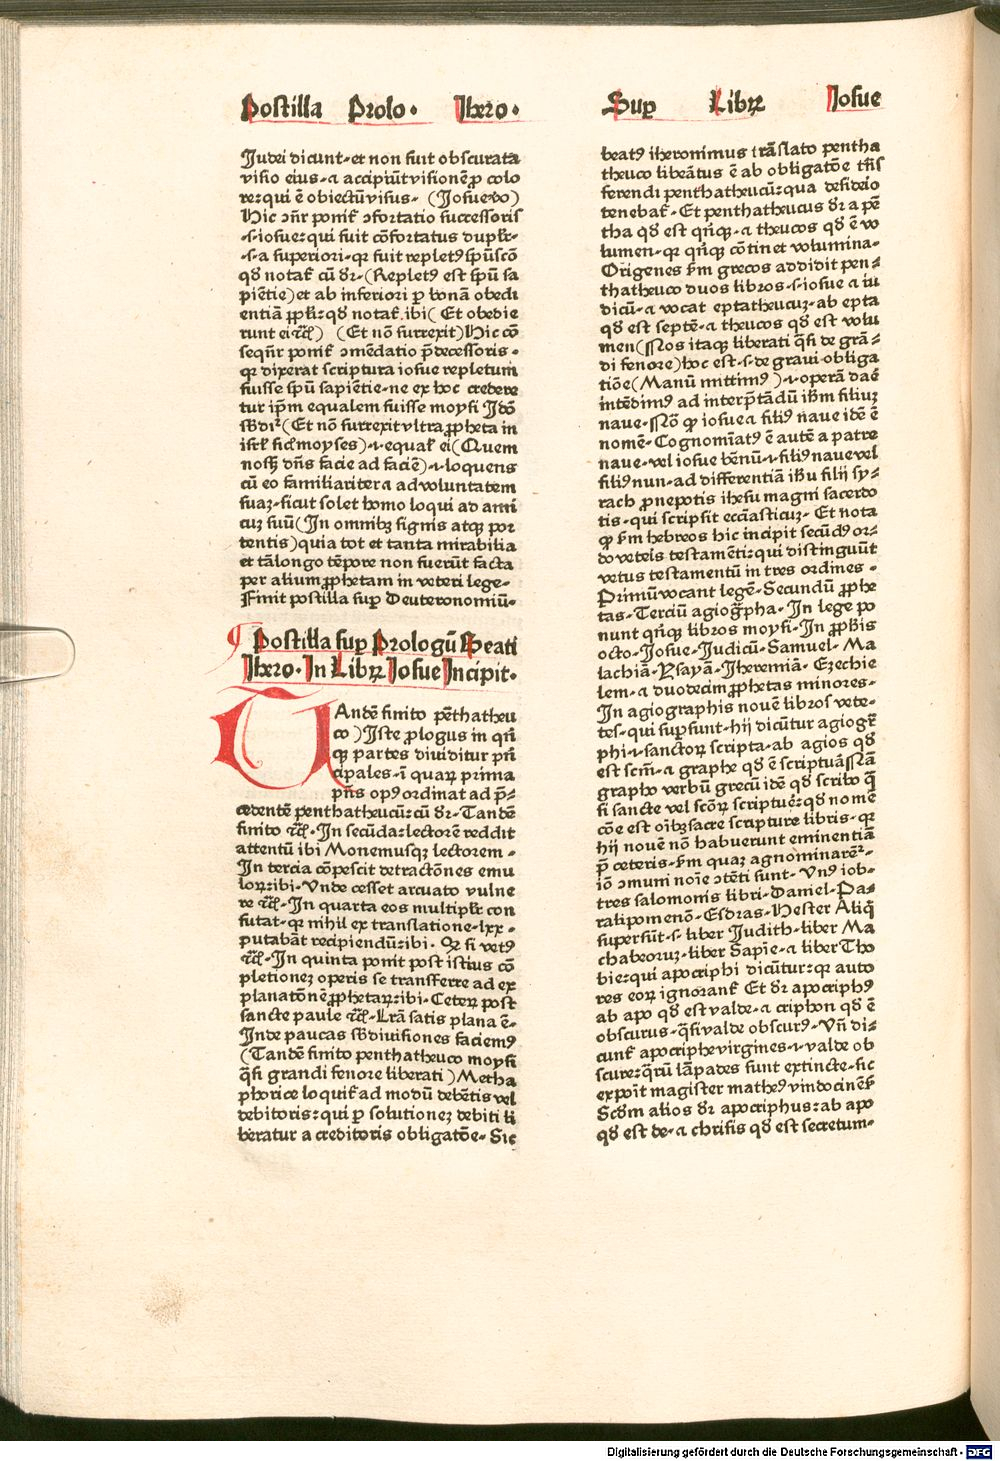 Postilla Prolo· Ihero·
Iudei dicunt·et non fuit obscurata
visio eius·⁊ accipiūt visionē ꝓ colo
re:qui ē obiectū visus· (Iosue vo)
Hic ↄn̄r ponit̄ ↄfortatio successoris
·s·iosue:qui fuit cōfortatus dupl̄r·
·s·a superiori·qꝛ fuit repletꝰ spūscō
qđ notat̄ cū dr̄·(Repletꝰ est spū sa
piētie) et ab inferiori ꝑ bonā obedi
entiā ꝓpl̄i:qđ notat̄ ibi( Et obedie
runt ei ⁊c̄) (Et nō surrexit)Hic cō
seqn̄r ponit̄ ↄmēdatio p̄decessoris·
qꝛ dixerat scriptura iosue repletum
fuisse spū sapiētie·ne ex hoc credere
tur ip̄m equalem fuisse moysi Idō
sb̄dit᷑ (Et nō surrexit vltra ꝓpheta in
isrl̄ sic̄ moyses)·i·equal̄ ei(Quem
nosꝫ dn̄s facie ad faciē)·i·loquens
cū eo familiariter a advoluntatem
suaꝫ·sicut solet homo loqui ad ami
cuꝫ suū(In omnibꝫ signis atqꝫ por
tentis)quia tot et tanta mirabilia
et tālongo tēpore non fuerūt facta
per alium ꝓphetam in veteri lege·
Finit postilla suꝑ Deuteronomiū·
¶ Postilla suꝑ Prologū Beati
Ihero· In Libꝝ Iosue Incipit·
TAndē finito pēthatheu
co )Iste ꝓlogus in qn̄
qꝫ partes dividitur pn̄
cipales·ī quaꝝ prima
pn̄s opꝰ ordinat ad p̄-
cedentē penthatheucū:cū dr̄·Tandē
finito ⁊c̄l·In secūda:lectorē reddit
attentū ibi Monemusqꝫ lectorem·
In tercia cōpescit detractōnes emu
loꝝ:ibi·Vnde cesset arcuato vulne
re ⁊c̄l·In quarta eos multipl̄r con
futat·qꝛ nihil ex translatione·lxx·
putabāt recipiendū:ibi· Qꝛ si vetꝰ
⁊c̄l·In quinta ponit post istius cō
pletioneꝫ operis se transferre ad ex
planatōnē ꝓphetaꝝ:ibi·Ceteꝝ post
sancte paule ⁊c̄l·Lr̄a satis plana ē·
Inde paucas sb̄divisiones faciemꝰ
(Tandē finito penthatheuco moysi
q̄si grandi fenore liberati )Metha
phorice loquit̄ ad modū debētis vel
debitoris:qui ꝑ solutioneꝫ debiti li
beratur a creditoris obligatōe· Sic
Suꝑ Libꝝ Iosue
beatꝰ iheronimus trāslato pentha
theuco liberātus ē ab obligatōe trās
ferendi penthatheucū:qua desiderio
tenebat̄·Et penthatheucus dr̄ a pē
tha qđ est qn̄qꝫ·⁊ theucos qđ ē vo
lumen·qꝛ qn̄qꝫ cōtinet volumina·
Origenes s̄m grecos addidit pen-
thatheuco duos libros·s·iosue ⁊ iu
dicū·⁊ vocat eptatheucuꝫ·ab epta
qđ est septē·⁊ theucos qđ est volu
men(Nos itaqꝫ liberati q̄si de grā-
di fenore)hoc est·s·de gravi obliga
tiōe(Manū mittimꝰ )·i·operā daē
intēdimꝰ ad interp̄tādū ih̄m filiuꝫ
nave·Nō ꝙ iosue ⁊ filiꝰ nave idē ē
nomē·Cognomīatꝰ ē autē a patre
nave·vel iosue bēnū·i·filiꝰ nave vel
filiꝰ nun·ad differentiā ih̄u filii sy-
rach ꝓnepotis ihesu magni sacerdo
tis·qui scripsit eccīasticuꝫ·Et nota
ꝙ s̄m hebreos hic incipit secūdꝰ or-
do veteīs testamēti:qui distinguūt
vetus testamentū in tres ordines·
Primū vocant legē·Secundū ꝓphe
tas·Terciū agiogr̄pha·In lege po
nunt qn̄qꝫ libros moysi·In ꝓph̄is
octo·Iosue·Iudicū·Samuel·Ma
lachiā·Ysayā·Iheremiā·Ezechie
lem·⁊ duodecim ꝓphetas minores·
In agiographis novē libros vete-
tes·qui suꝑsunt·hii dicūtur agiogr̄
phi·i·sanctoꝝ scripta·ab agios qđ
est scm̄·⁊ graphe qđ ē scriptura Nā
grapho verbū grecū idē qđ scribo q̄
si sancte vel scōꝝ scripture:qđ nomē
cōe est oībꝫ sacre scripture libris·qꝛ
hii novē nō habuerunt eminentiā
p̄ ceteris·s̄m quaꝫ agnominarēt᷑·
iō ↄmuni noīe ↄtēti sunt·Vnꝰ iob·
tres salomonis libri·Daniel·Pa-
ralipomenō·Esdras·Hester Aliq̄
supersūt·s·liber Iudith·liber Ma
chabeoruꝫ·liber Sapīe·⁊ liber Tho
bie:qui apocriphi dicūtur:qꝛ auto
res eoꝝ ignorant̄ Et dr̄ apocriphꝰ
ab apo qđ est valde·⁊ criphon qđ ē
obscurus·q̄si valde obscurꝰ·Vn̄ di-
cunt̄ apocriphe virgines·i·valde ob
scure:qr̄ū lāpades sunt extincte·sic
expoīt magister matheꝰ vindocinēs̄
Scd̄m alios dr̄ apocriphus:ab apo
qđ est de·⁊ chrisis qđ est secretum·
Digitalisierung gefördert durch die Deutsche Forschungsgemeinschaft - DFG